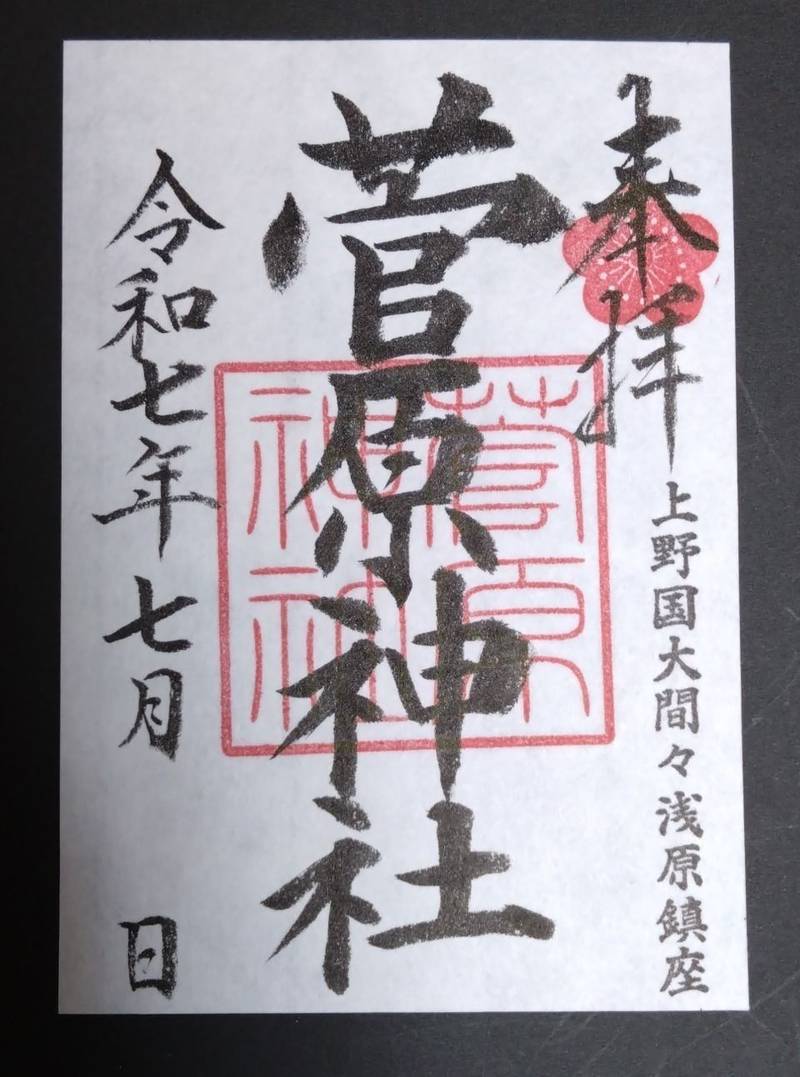 奉拝
上野国大間々浅原鎮座
菅原神社
菅原
神社
令和七年七月 日